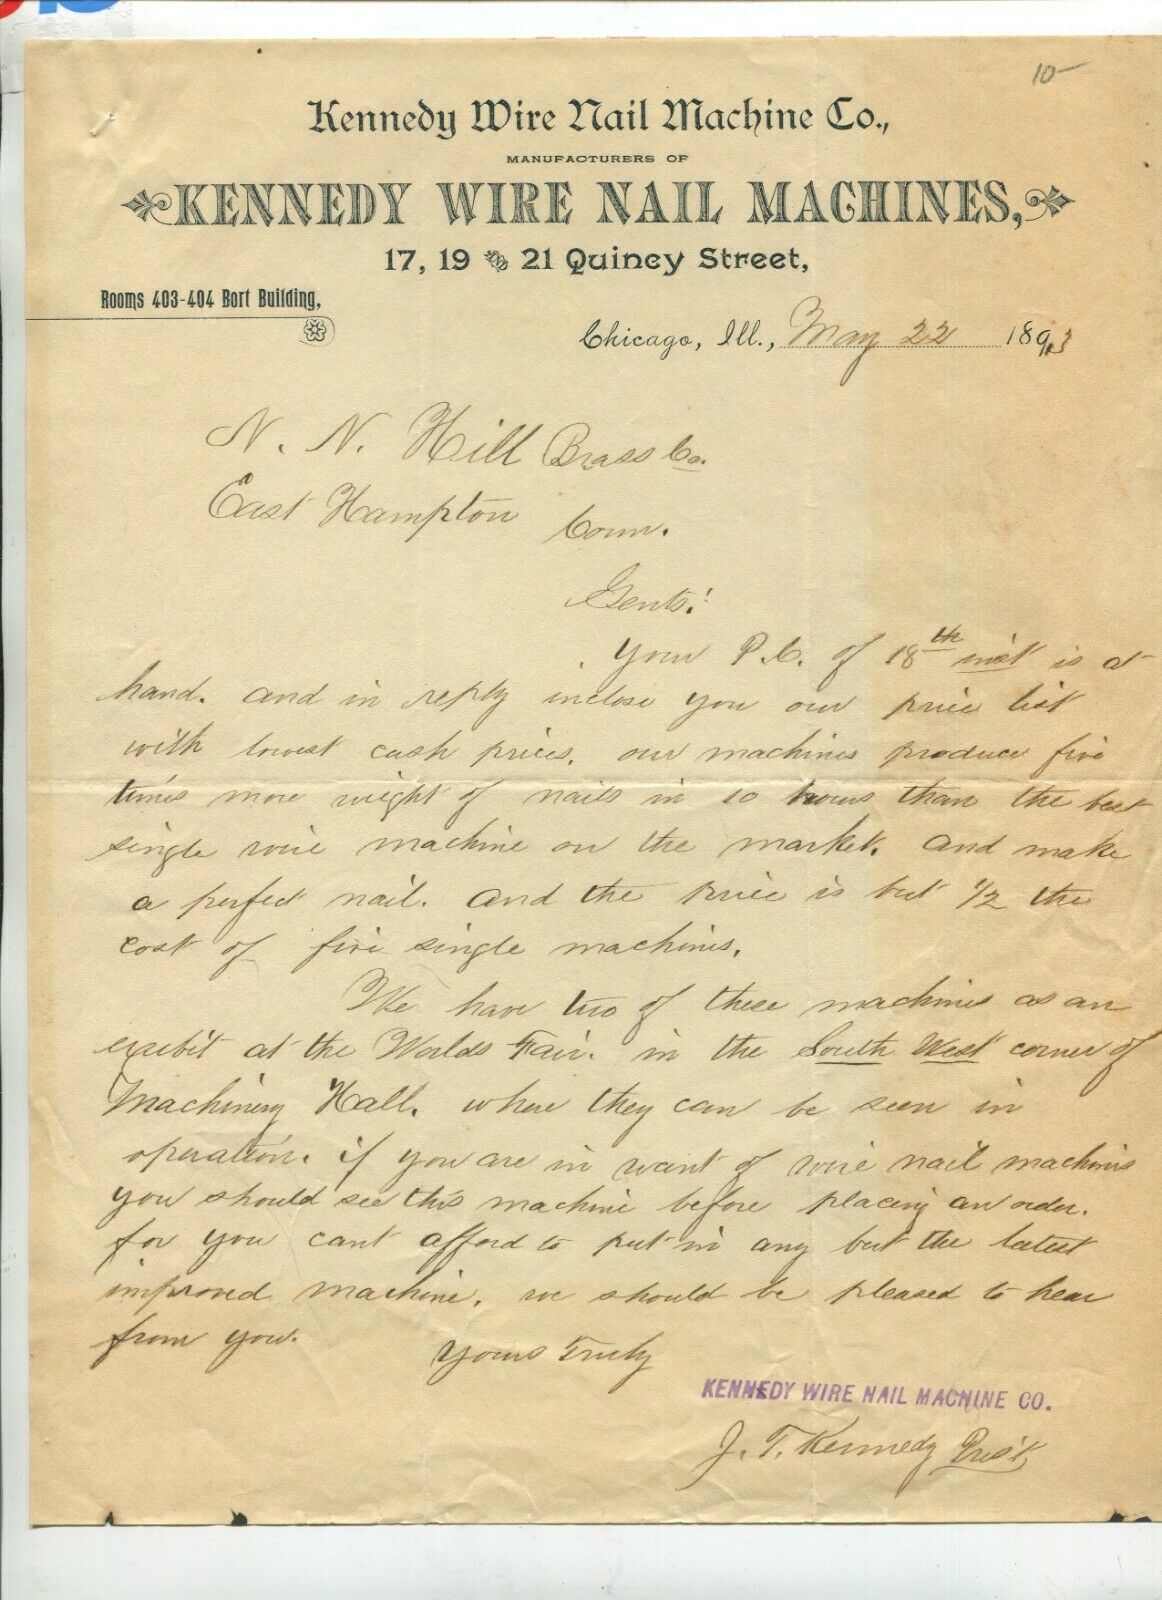 10-
Kennedy Wire Nail Machine Co.,
MANUFACTURERS OF
KENNEDY WIRE NAIL MACHINES,
17, 19 & 21 Quincy Street,
Rooms 403-404 Bort Building,
Chicago, Ill., May 22 1893
N. N. Hill Brass Co.
East Hampton Conn.
Gents!
Your P.C. of 18th inst is at
hand. and in reply inclose you our price list
with lowest cash prices. our machines produce five
times more weight of nails in 10 hours than the best
single wire machine on the market. and make
a perfect nail. and the price is but 1/2 the
cost of five single machines.
We have two of these machines as an
exibit at the Worlds Fair. in the South West corner of
Machinery Hall. where they can be seen in
operation. if you are in want of wire nail machines
you should see this machine before placing an order.
for you cant afford to put in any but the latest
improved machine. we should be pleased to hear
from you.
Yours Truly
KENNEDY WIRE NAIL MACHINE CO.
J. T. Kennedy Pres't